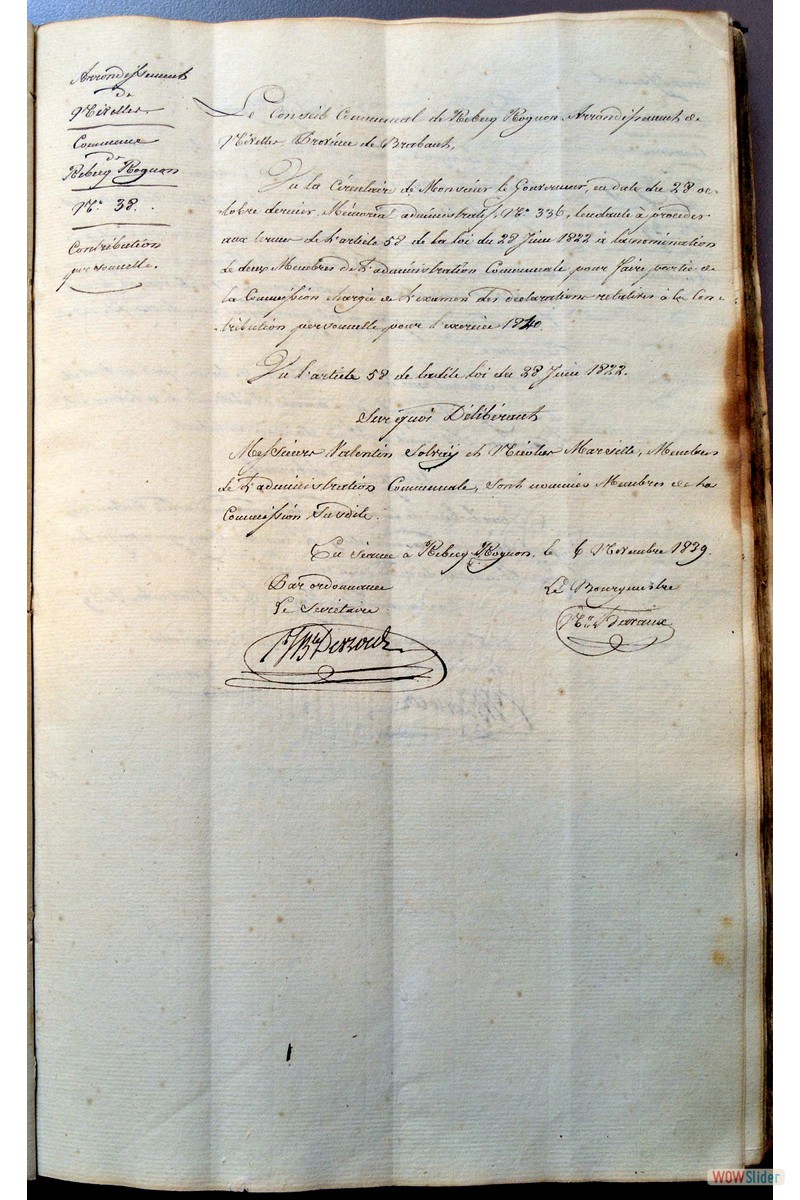 Arrondissement
de
Nivelles
Commune
de
Rebecq Rognon
N° 38.
Contribution
personnelle.
Le Conseil Communal de Rebecq Rognon Arrondissement de
Nivelles, Province de Brabant,
Vu la Circulaire de Monsieur le Gouverneur, en date du 28 oc-
tobre dernier, Mémorial administratif, N° 336, tendante à procéder
aux termes de l'article 58 de la loi du 28 Juin 1822 à la nomination
de deux Membres de l'administration Communale, pour faire partie de
la Commission chargée de l'examen des déclarations relatives à la Con-
tribution personnelle pour l'exercice 1840.
Vu l'article 58 de ladite loi du 28 Juin 1822.
Sur quoi Délibérant
Messieurs Valentin Solvay et Nicolas Marsille, Membres
de l'administration Communale, sont nommés Membres de la
Commission susdite.
En séance à Rebecq Rognon, le 6 Novembre 1839.
Par ordonnance
Le Bourgmestre
Le Secrétaire
WOWSlider